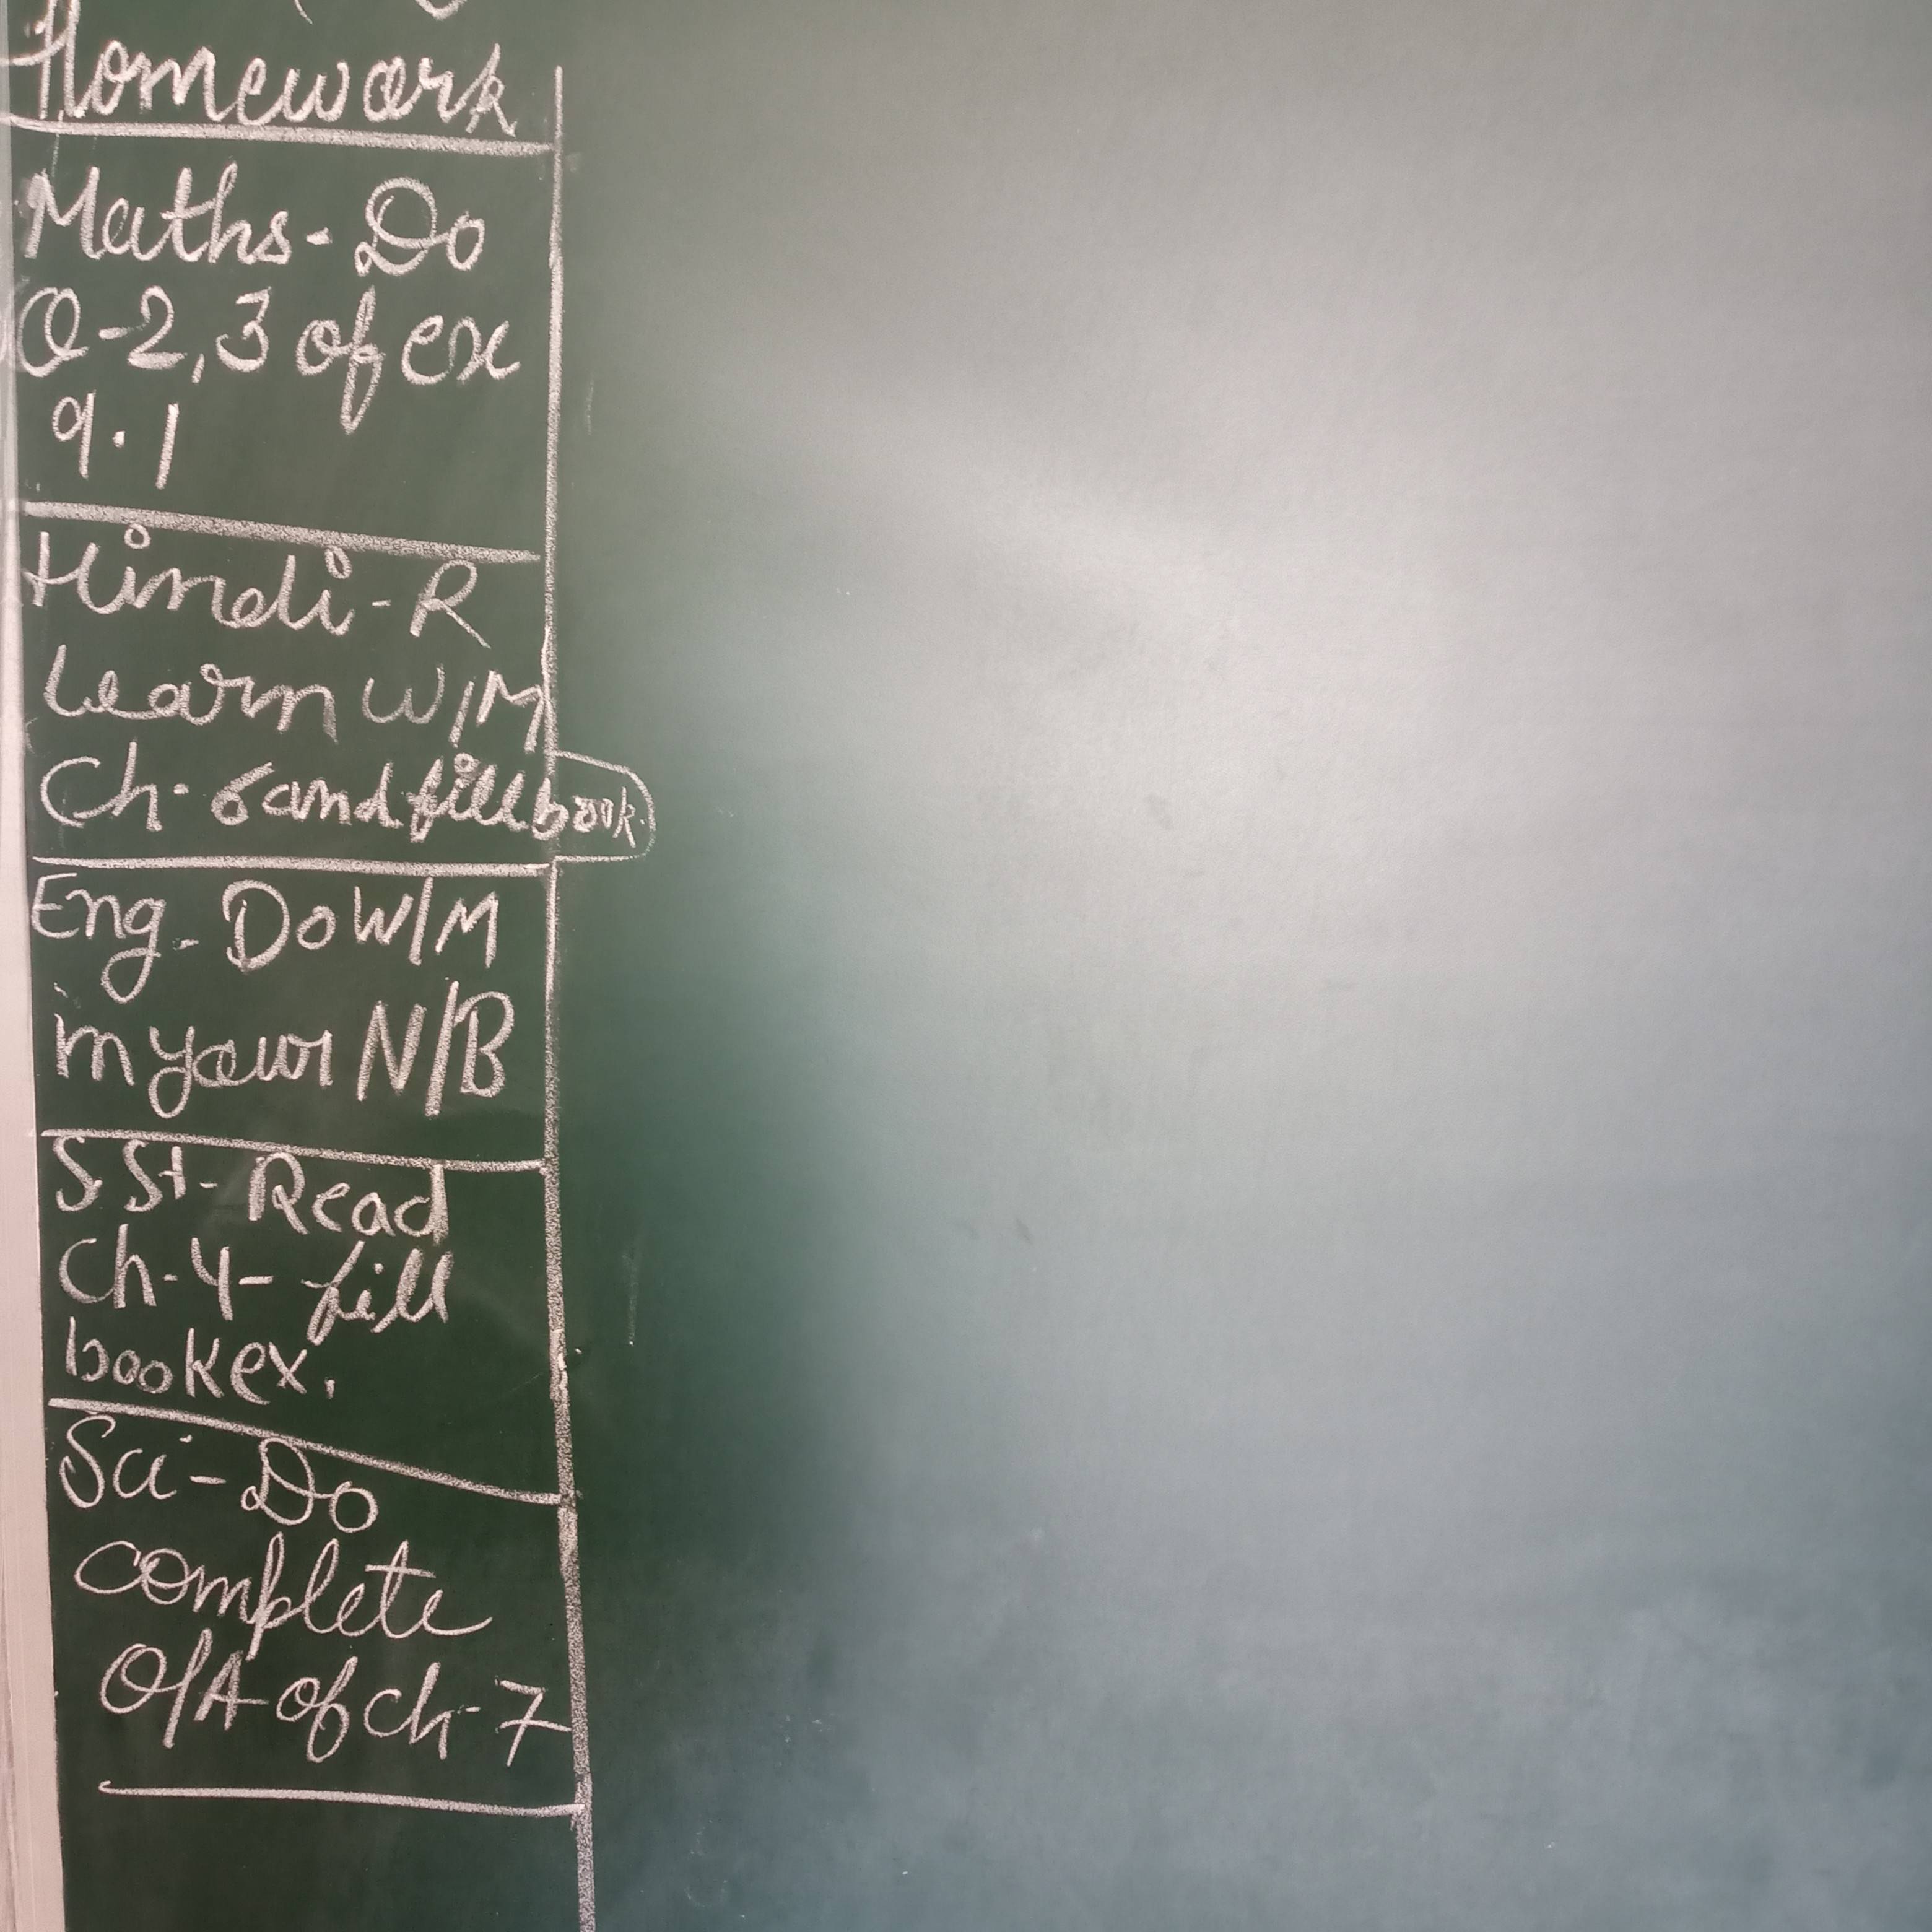 Homework
Maths - Do
Q-2,3 of ex
9.1
Hindi - R
Learn W/M
Ch. 6 and fill book.
Eng. Do W/M
in your N/B
S.St - Read
Ch-4 - fill
book ex.
Sci - Do
complete
Q/A of ch-7